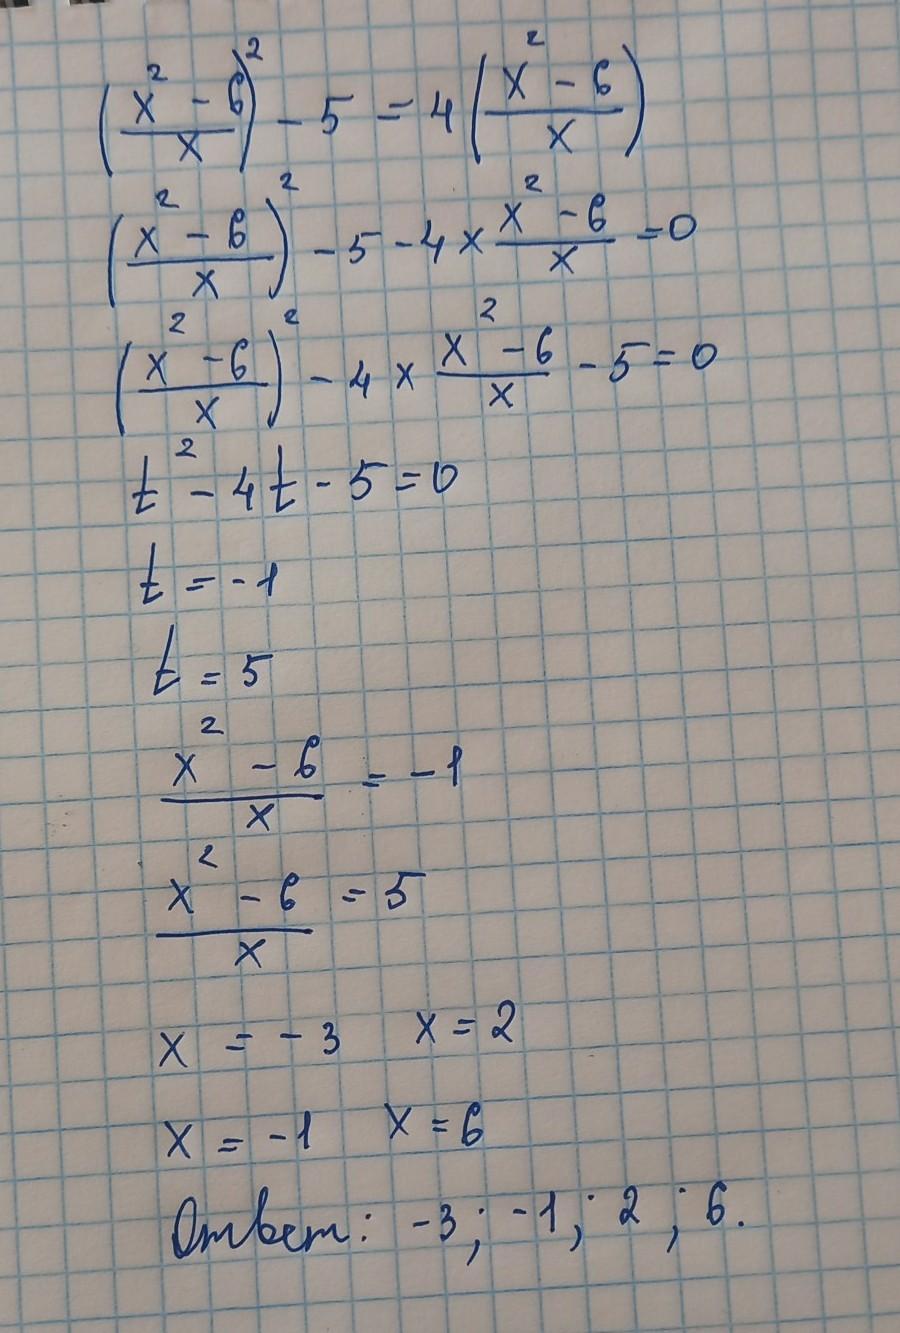 ((x² - 6)/x)² - 5 = 4((x² - 6)/x)
((x² - 6)/x)² - 5 - 4 × (x² - 6)/x = 0
((x² - 6)/x)² - 4 × (x² - 6)/x - 5 = 0
t² - 4t - 5 = 0
t = -1
t = 5
(x² - 6)/x = -1
(x² - 6)/x = 5
x = -3 x = 2
x = -1 x = 6
Ответ: -3; -1; 2; 6.